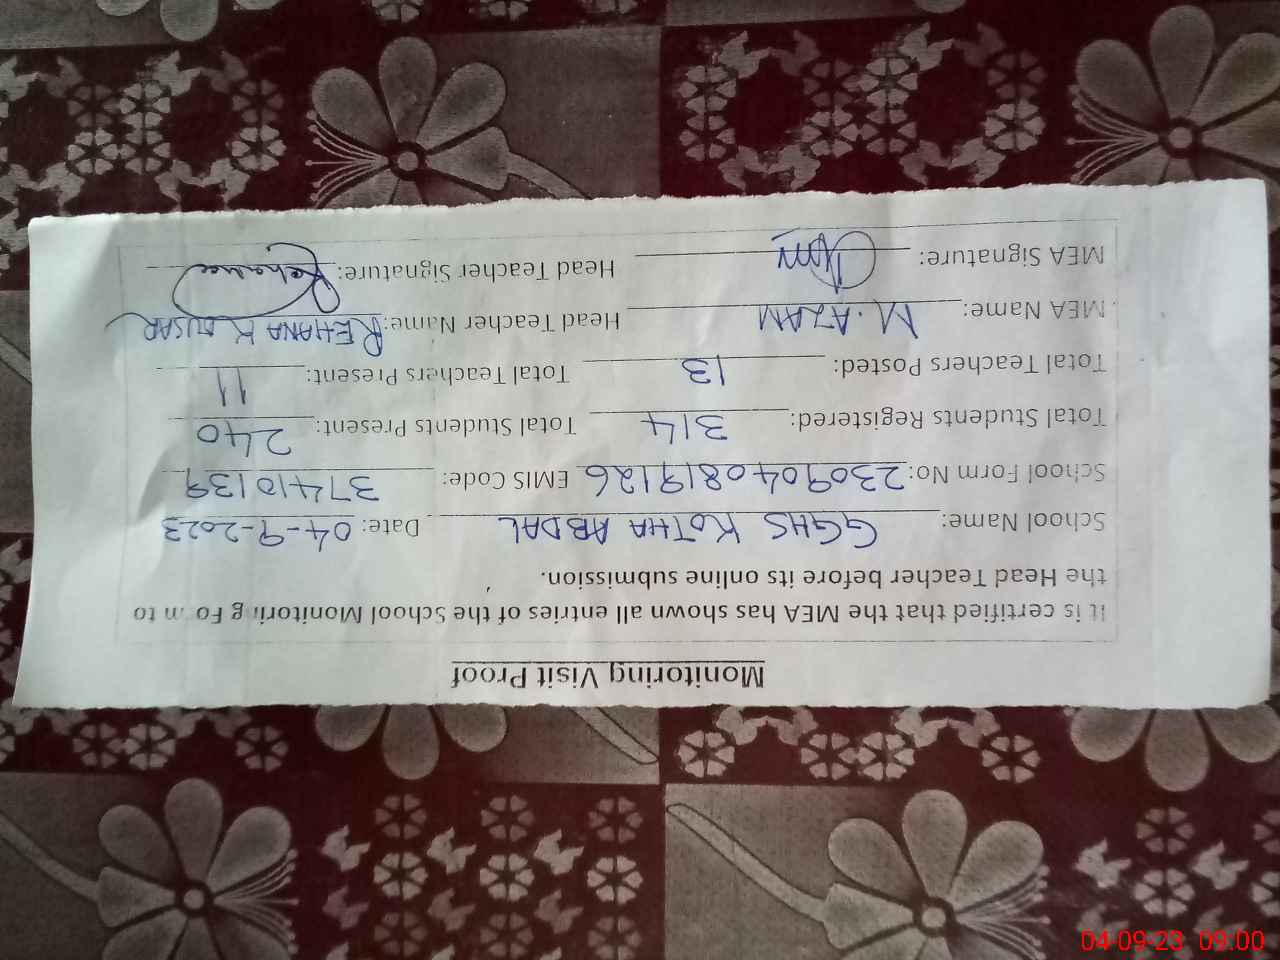 Monitoring Visit Proof
It is certified that the MEA has shown all entries of the School Monitoring Form to
the Head Teacher before its online submission.
School Name: GGHS KOTHA ABDAL Date: 04-9-2023
School Form No: 2309040819126 EMIS Code: 37410139
Total Students Registered: 314 Total Students Present: 240
Total Teachers Posted: 13 Total Teachers Present: 11
MEA Name: M.AZAM Head Teacher Name: REHANA KAUSAR
MEA Signature: Head Teacher Signature: Rehana
04-09-23 09:00